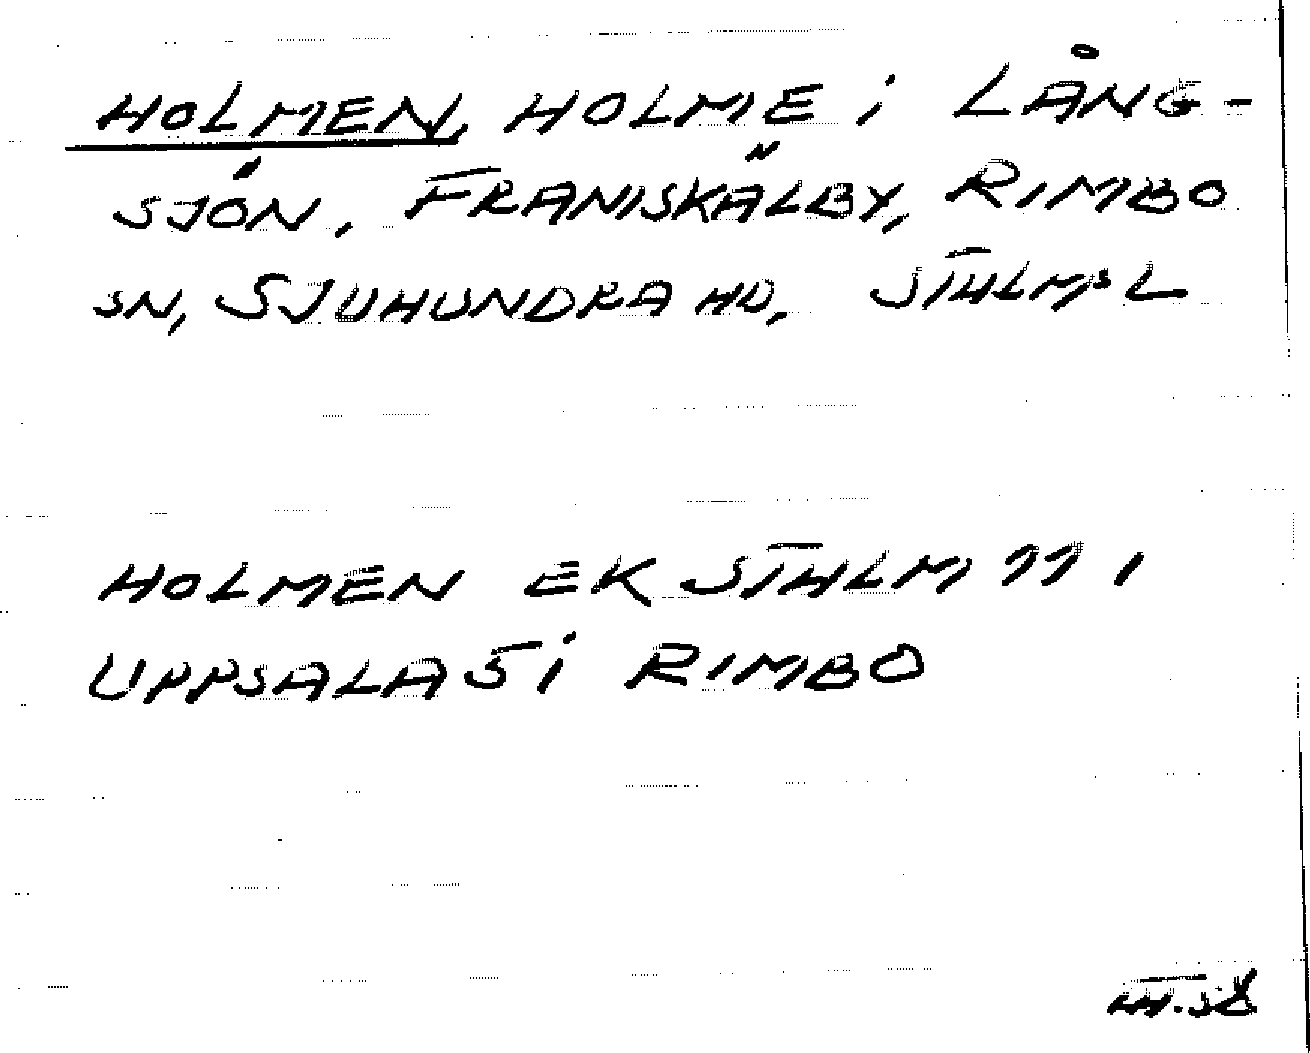 HOLMEN, HOLME i LÅNG-
SJÖN, FRANISKÄLBY, RIMBO
SN, SJUHUNDRA HD, STHLMS L
HOLMEN EK STHLM 11 1
UPPSALA 5 i RIMBO